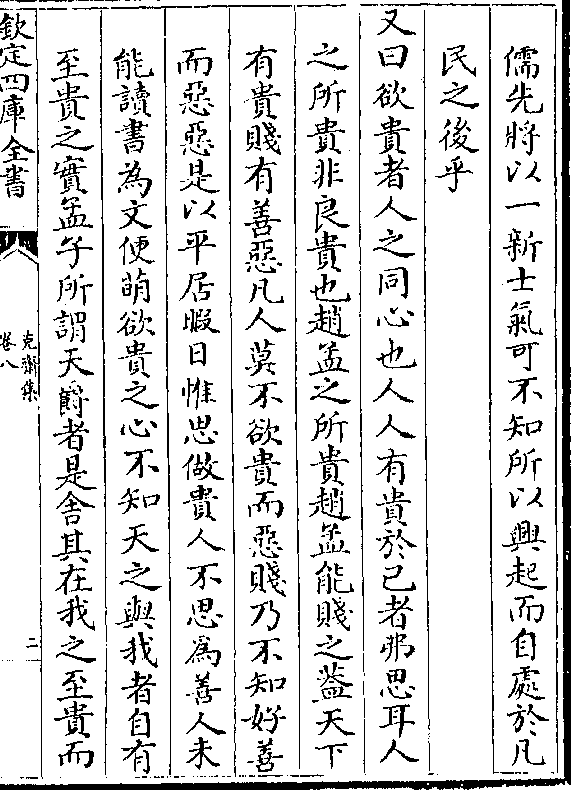 儒先將以一新士氣可不知所以興起而自處於凡
民之後乎
又曰欲貴者人之同心也人人有貴於己者弗思耳人
之所貴非良貴也趙孟之所貴趙孟能賤之葢天下
有貴賤有善惡凡人莫不欲貴而惡賤乃不知好善
而惡惡是以平居暇日惟思做貴人不思為善人未
能讀書為文便萌欲貴之心不知天之與我者自有
至貴之實孟子所謂天爵者是舍其在我之至貴而
欽定四庫全書
克齋集
卷八
二